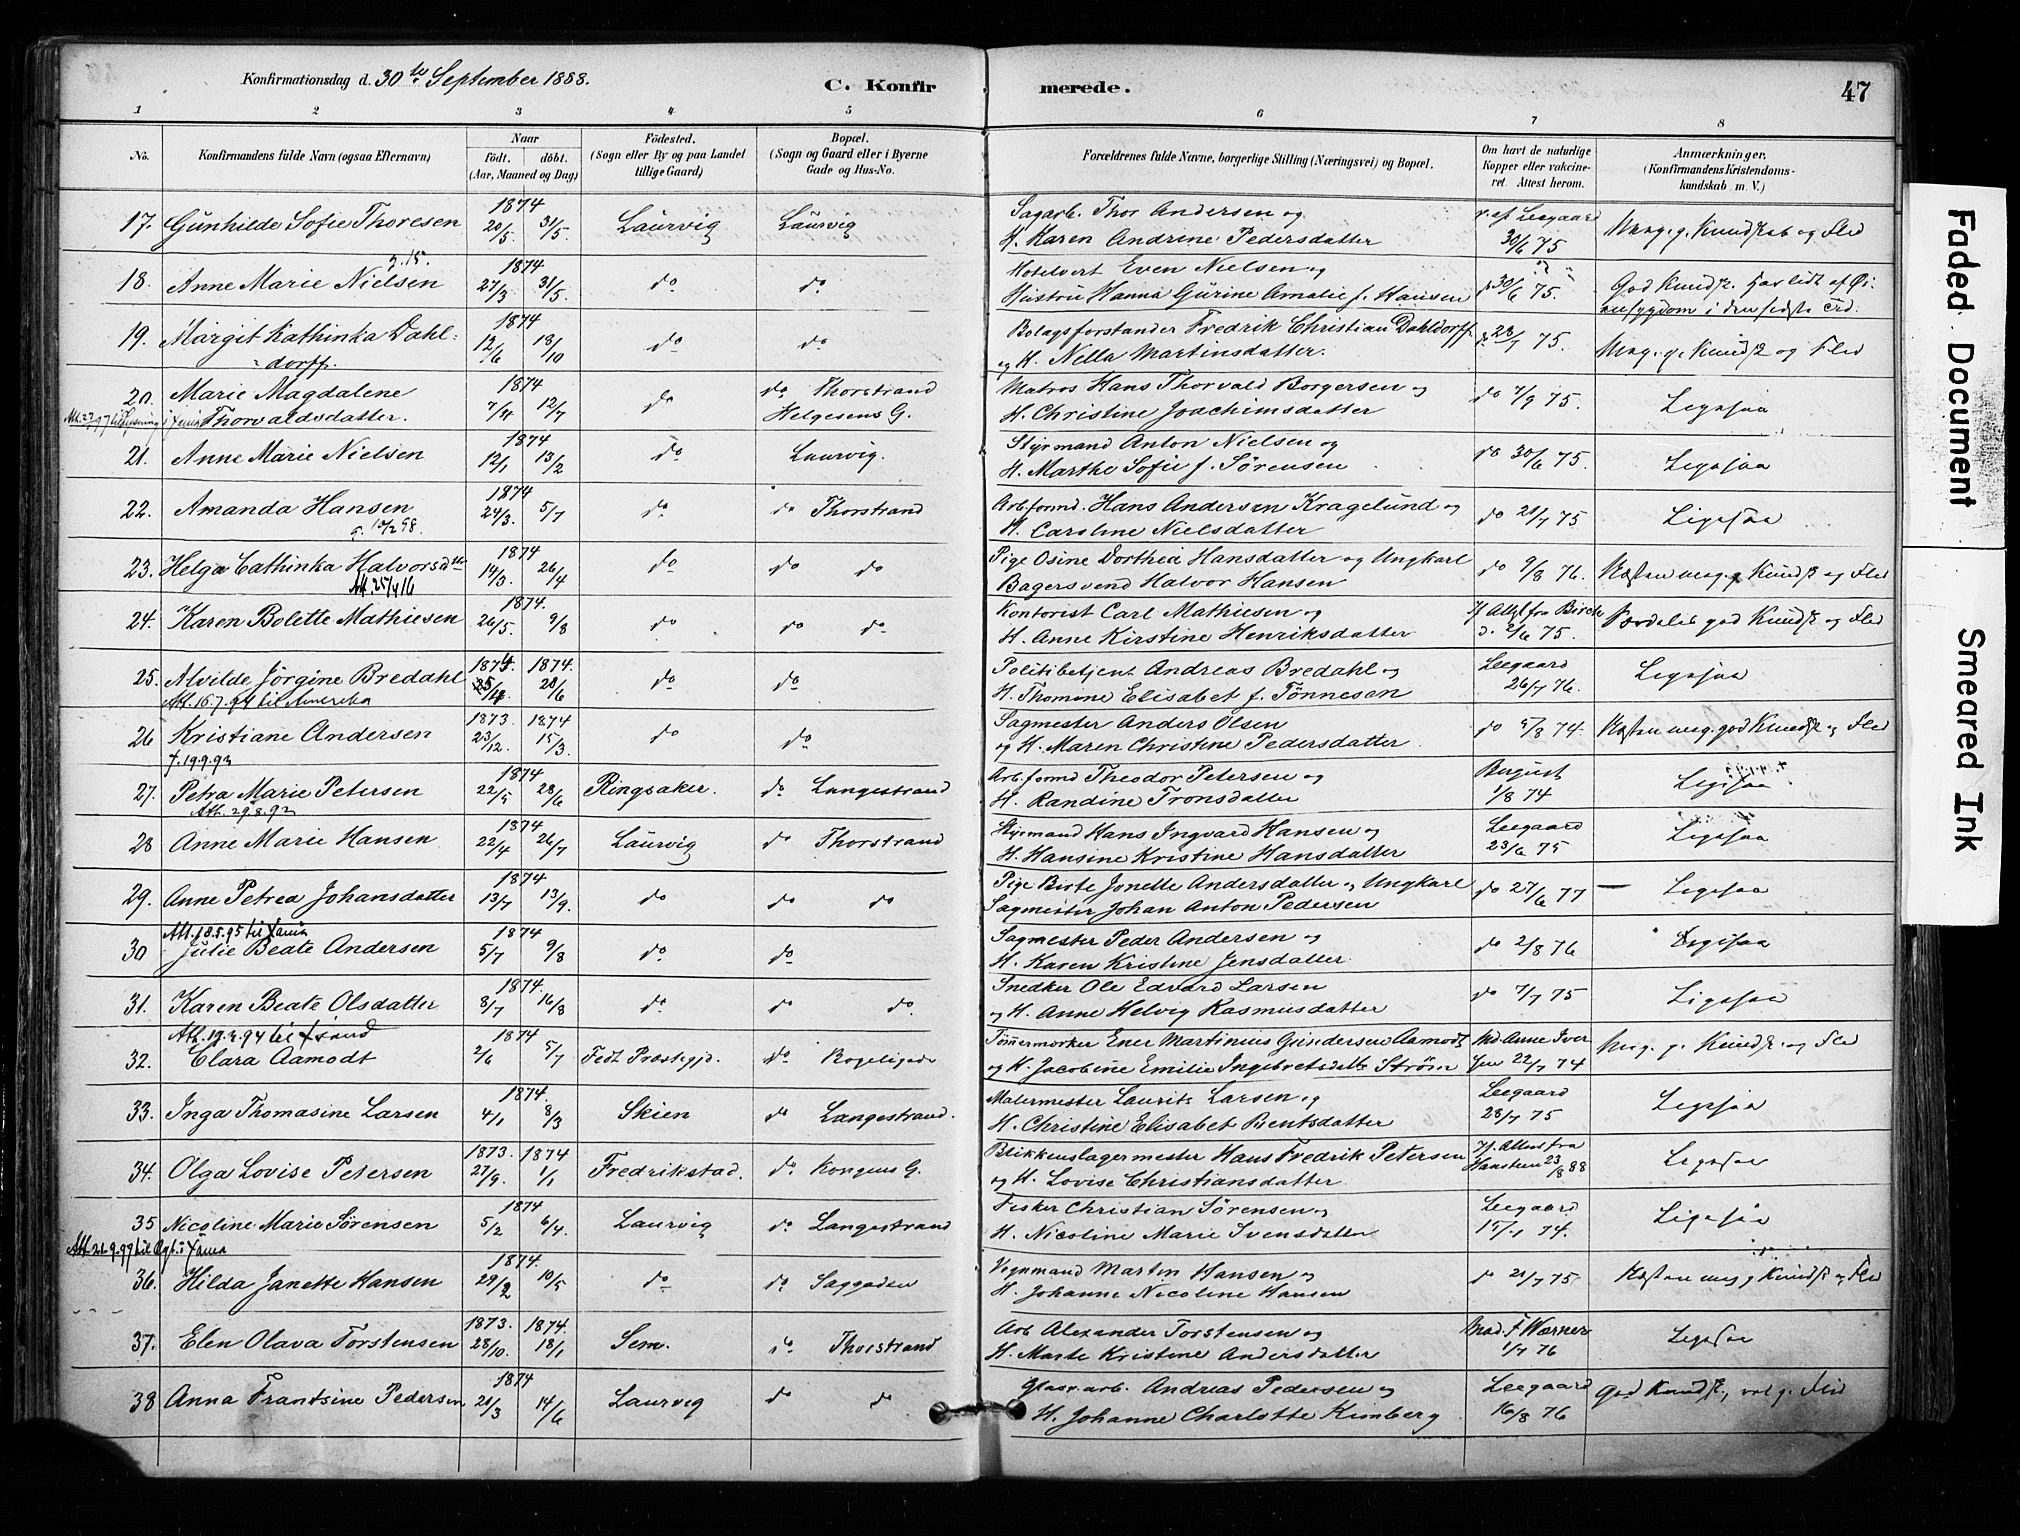 Konfirmationsdag d. 30te September 1888.
C. Konfir
merede.
47
1 2 3 4 5 6 7 8
No.
Konfirmandens fulde Navn (ogsaa Efternavn)
Naar
födt. döbt.
(Aar, Maaned og Dag)
Födested.
(Sogn eller By og paa Landet
tillige Gaard)
Bopæl.
(Sogn og Gaard eller i Byerne
Gade og Hus-No.
Forældrenes fulde Navne, borgerlige Stilling (Næringsvei) og Bopæl.
Om havt de naturlige
Kopper eller vakcine-
ret. Attest herom.
Anmærkninger.
(Konfirmandens Kristendoms-
kundskab m. V.)
17. Gunhilde Sofie Thoresen 1874 20/5 31/5. Laurvig Laurvig
Sagarb. Thor Andersen og
H. Karen Andrine Pedersdatter
v. af Leegaard
30/6 75
Meg. g. Kundskab og Flid
18. Anne Marie Nielsen 1874 27/3 31/5. do do
Hotelvert Even Nielsen og
Hustru Hanna Gurine Amalie f. Hansen
30/6 75.
God Kundsk. Har lidt af Øi-
nesygdom i den sidste Tid.
19. Margit Kathinka Dahl-
dorff. 1874 12/6 18/10 do do
Bolagsforstander Fredrik Christian Dahldorff
og H. Nella Martinsdatter.
23/7 75.
Meg. g. Kundsk og Flid
20. Marie Magdalene
Thorvaldsdatter. 1874 7/4 12/7 do do Thorstrand
Helgesens G.
Matros Hans Thorvald Borgersen og
H. Christine Joachimsdatter
do 7/9 75.
Ligesaa
21. Anne Marie Nielsen 1874 12/1 13/2 do Laurvig.
Styrmand Anton Nielsen og
H. Marthe Sofie f. Sørensen
do 30/6 75.
Ligesaa
22. Amanda Hansen 1874 24/3. 5/7 do do Thorstrand
Arb.formd. Hans Andersen Kragelund og
H. Caroline Nielsdatter
do 21/7 75
Ligesaa
23. Helga Cathinka Halvorsdtr 1874 14/3. 26/4 do do do
Att. 25/4 16
Pige Osine Dorthea Hansdatter og Ungkarl
Bagersvend Halvor Hansen
do 9/8 76.
Næsten meg. g. Kundsk og Flid
24. Karen Bolette Mathiesen 1874. 26/5. 9/8 do do do
Kontorist Carl Mathiesen og
H. Anne Kirstine Henriksdatter
2/6 75.
god Kundsk og Flid
25. Alvilde Jørgine Bredahl 1874 1874. 28/6 do do
Att. 16.7.94 til Amerika
Politibetjent Andreas Bredahl og
H. Thomine Elisabet f. Tønnesen
Leegaard
26/7 76.
Ligesaa
26 Kristiane Andersen 1873. 23/12. 1874 15/3. do do
f. 19.9.93
Sagmester Anders Olsen
og H. Maren Christine Pedersdatter
do 5/8 74.
Næsten meg. god Kundsk og Flid
27. Petra Marie Petersen 1874 22/5 28/6 Ringsaker. do Langestrand
Att. 29.8.92
Arb.formd Theodor Petersen og
H. Randine Tronsdatter
August
1/8 74
Ligesaa
28 Anne Marie Hansen 1874 22/4 26/7 Laurvig do Thorstrand
Styrmand Hans Ingvard Hansen og
H. Hansine Kristine Hansdatter
Leegaard
23/6 75
Ligesaa
29. Anne Petrea Johansdatter 1874 13/7 13/9. do do do
Pige Birte Jonette Andersdatter og Ungkarl
Sagmester Johan Anton Pedersen
do 27/6 77
Ligesaa
Att. 18.5.95 til Xania
30 Julie Beate Andersen 1874 5/7 9/8 do do
Sagmester Peder Andersen og
H. Karen Kristine Jensdatter.
do 2/8 76
Ligesaa
31. Karen Beate Olsdatter 1874. 8/7 16/8 do do do
Snedker Ole Edvard Larsen
og H. Anne Helvig Rasmusdatter
do 7/7 75
Ligesaa
32. Clara Aamodt 1874 2/6 5/7 do Bøgeligade
Tømmermerker Ener Martinius Gundersen Aamodt
og H. Jacobine Emilie Ingebretsdatter Strøm
Md. Anne Iver-
sen 22/7 74
Meg. g. Kundsk. og Flid
33. Inga Thomasine Larsen 1874. 4/1 8/3 Skien do Langestrand.
Malermester Laurits Larsen og
H. Christine Elisabet Bentsdatter
Leegaard
28/7 75
Ligesaa
34. Olga Lovise Petersen 1873. 27/9. 1874 1/1 Fredrikstad. do Kongens G.
Blikkenslagermester Hans Fredrik Petersen
og H. Lovise Christiansdatter
If. Attest fra
Hansteen 23/8 88
Ligesaa
35 Nicoline Marie Sørensen 1874 5/2 6/4. Laurvig do Langestrand
Fisker Christian Sørensen og
H. Nicoline Marie Ivensdatter
Leegaard
74.
Ligesaa
36. Hilda Janette Hansen 1874. 29/2 10/5 do do Saggaden
Vognmand Martin Hansen og
H. Johanne Nicoline Hansen
do 21/7 75
Næsten meg g Kundsk og Flid
37. Elen Olava Torstensen 1873. 28/10. 1874. 18/1 Sem. do Thorstrand
Arb Alexander Torstensen og
H. Marte Kristine Andersdatter
Mad. F. Wærner
1/7 76
Ligesaa
38 Anna Frantsine Pedersen 1874 21/3 14/6 Laurvig do do
Glasv.arb. Andreas Pedersen og
H. Johanne Charlotte Kimberg
Leegaard
16/8 76
God Kundsk, Flid
Faded Document
Smeared Ink